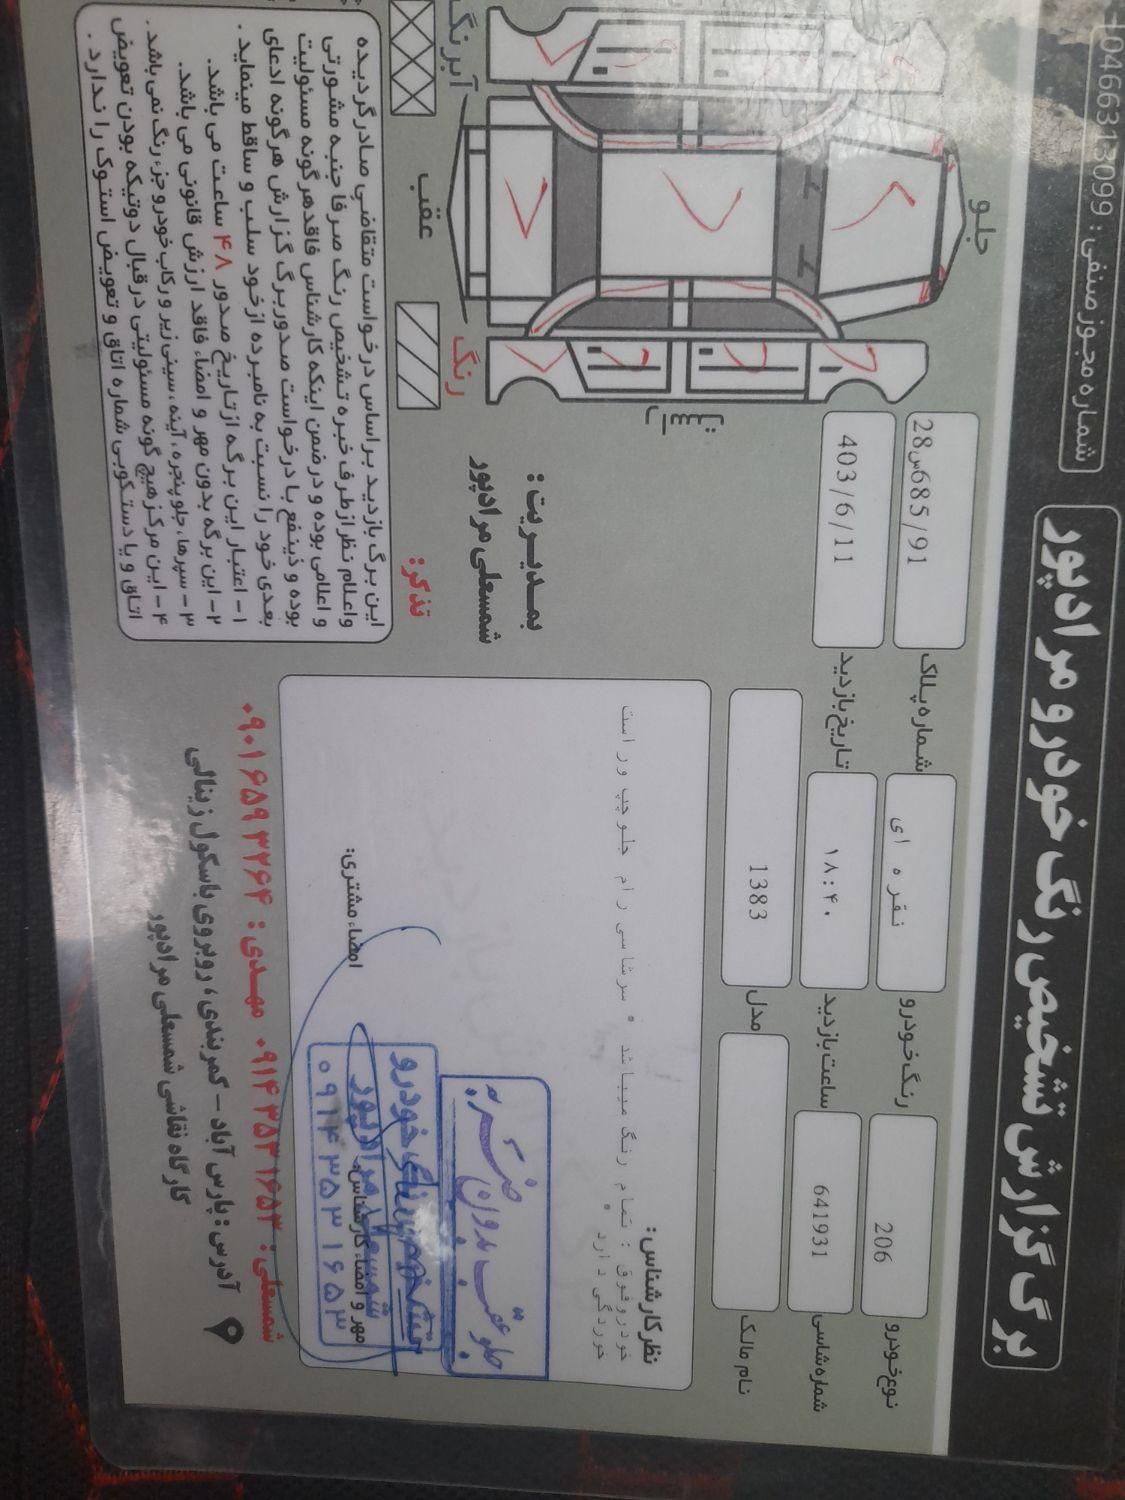 شماره مجوز صنفی : 0466313099
برگ گزارش تشخیص رنگ خودرو مرادپور
نوع خودرو 206
رنگ خودرو نقره ای
شماره پلاک 28س685/91
شماره شاسی 641931
ساعت بازدید ۱۸:۴۰
تاریخ بازدید 403/6/11
نام مالک
مدل 1383
جلو
عقب
رنگ
نظر کارشناس:
خودرو فوق : تمام رنگ میباشد ۰ سرشاسی رام جلو چپ وراست
خوردگی دارد
جلو عقب بدون ضربه
تشخیص رنگ خودرو
شمسعلی مرادپور
۰۹۱۴۳۵۳۱۶۵۳
مهر و امضاء کارشناس:
امضاء مشتری:
بمدیریت:
شمسعلی مرادپور
تذکر:
این برگ بازدید بر اساس درخواست متقاضی صادر گردیده
و اعلام نظر از طرف خبره تشخیص رنگ صرفا جنبه مشورتی
و اعلامی بوده و در ضمن اینکه کارشناس فاقد هرگونه مسئولیت
بوده و ذینفع با درخواست صدور برگ گزارش هرگونه ادعای
بعدی خود را نسبت به نامبرده از خود سلب و ساقط مینماید.
۱- اعتبار این برگه از تاریخ صدور ۴۸ ساعت می باشد.
۲- این برگه بدون مهر و امضاء، فاقد ارزش قانونی می باشد.
۳- سپرها، جلو پنجره، آینه، سینی زیر و رکاب خودرو جزء رنگ نمی باشد.
۴- این مرکز هیچ گونه مسئولیتی در قبال دوتیکه بودن تعویض
اتاق و یا دستکوبی شماره اتاق و تعویض استوک را ندارد.
شمسعلی: ۰۹۱۴۳۵۳۱۶۵۳ مهدی: ۰۹۰۱۶۵۹۳۲۶۴
آدرس: پارس آباد - کمربندی، روبروی باسکول زینالی
کارگاه نقاشی شمسعلی مرادپور